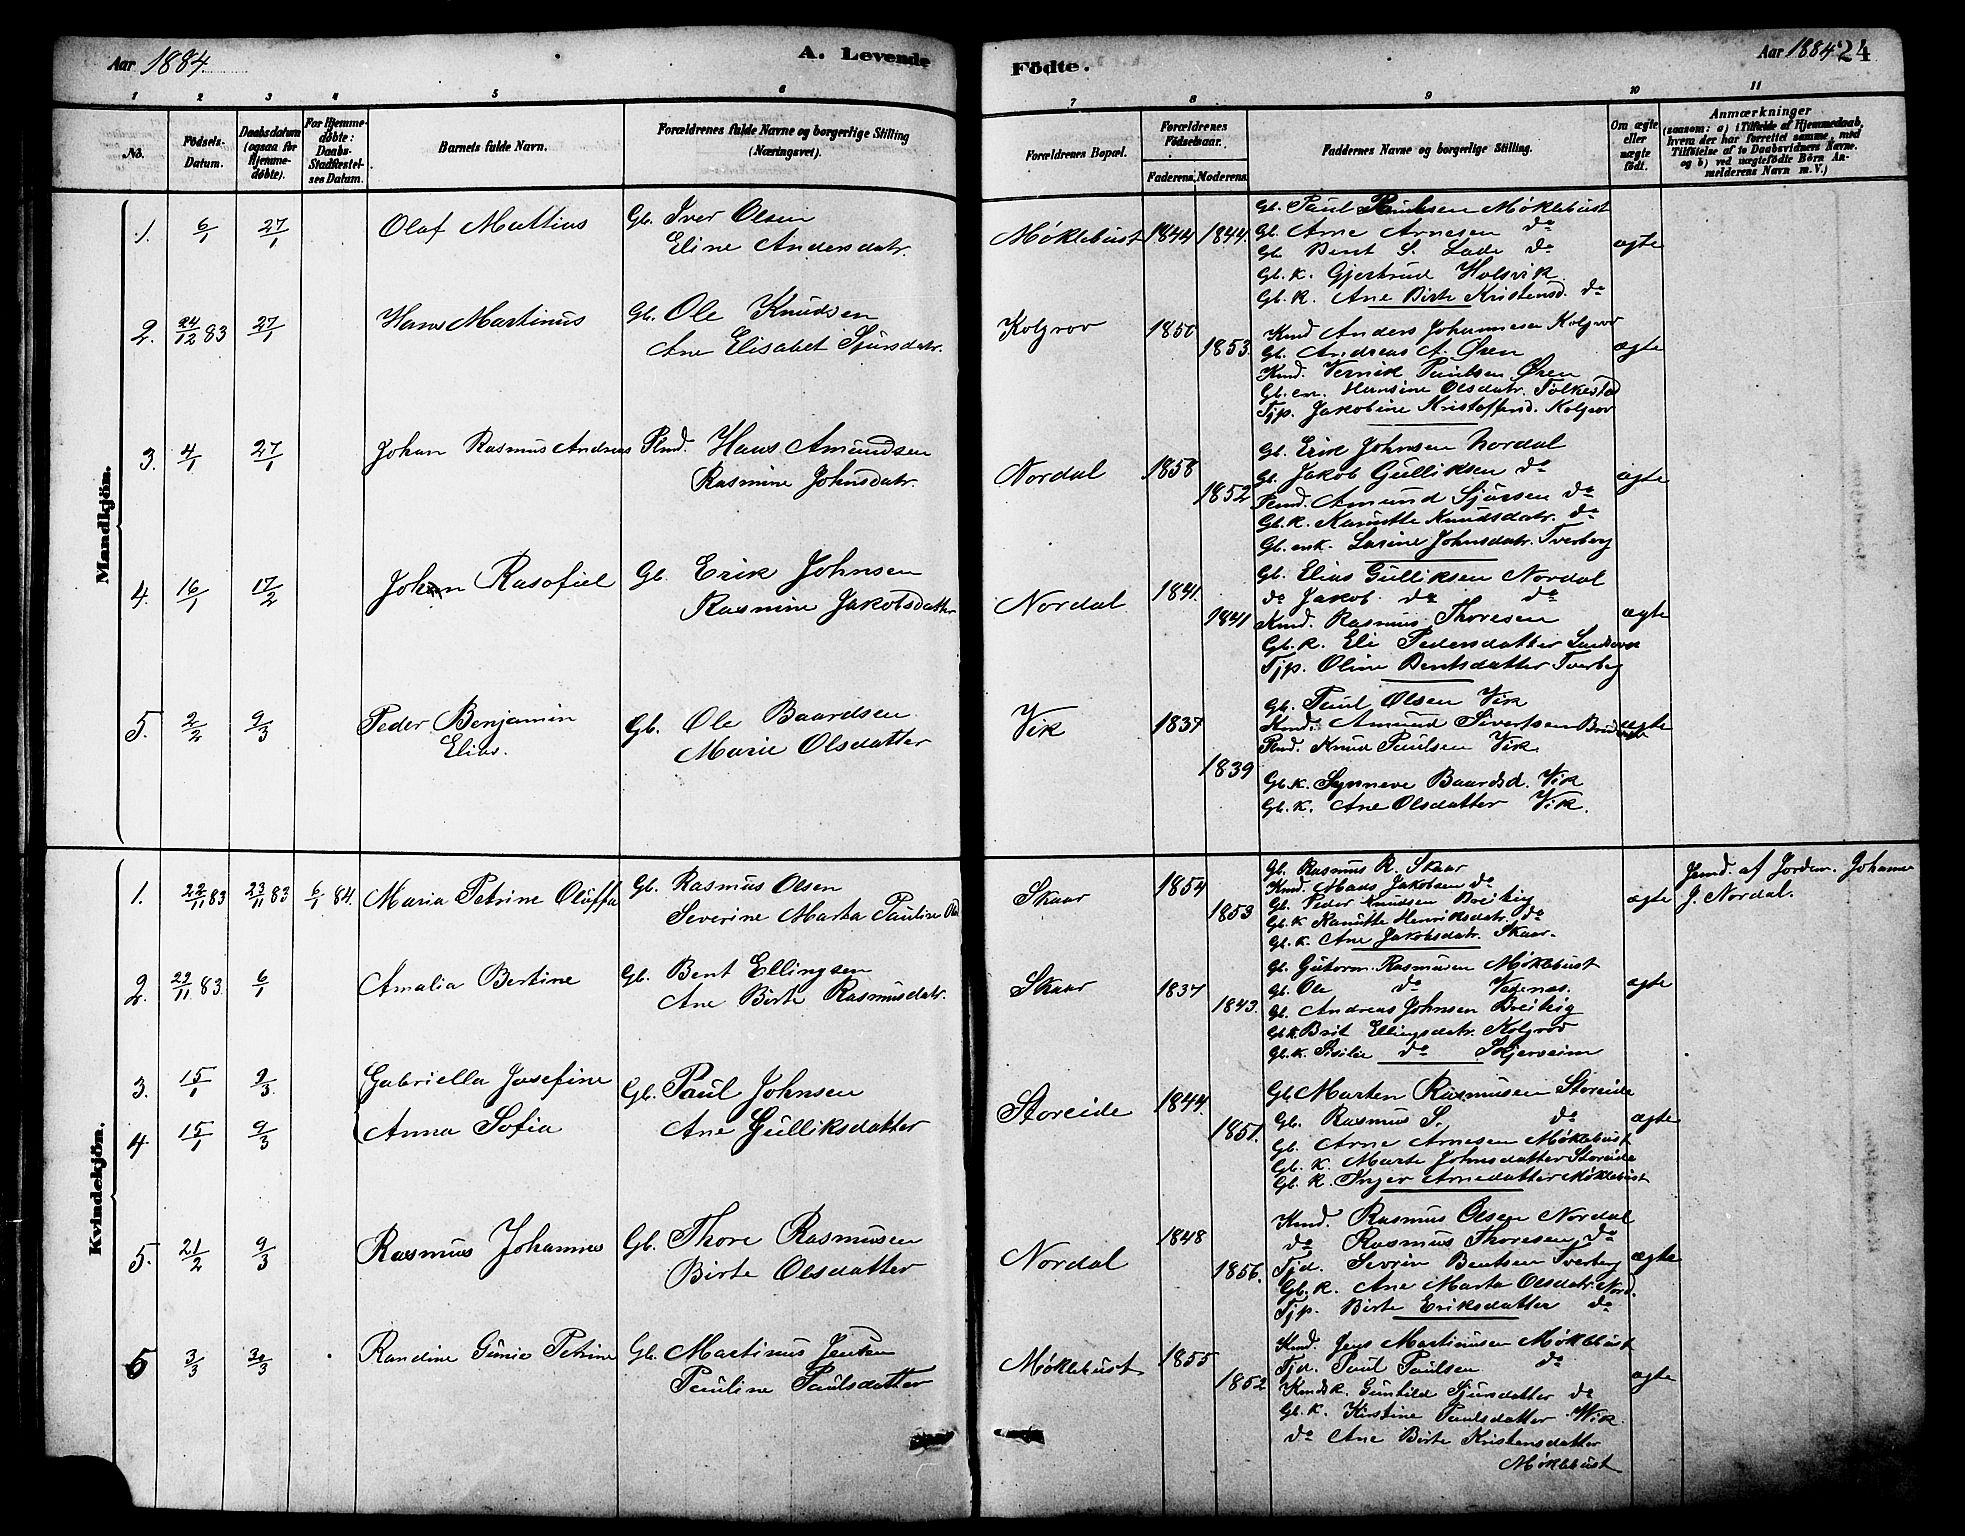 Aar 1884
A. Levende
Födte.
Aar 1884 24
1 2 3 4 5 6 7 8 9 10 11
No.
Födsels-Datum.
Daabsdatum (ogsaa for Hjemmedöbte).
For Hjemmedöbte: Daabs-Stadfestelses Datum.
Barnets fulde Navn.
Forældrenes fulde Navne og borgerlige Stilling (Næringsvei).
Forældrenes Bopæl.
Forældrenes Födselsaar.
Faderens. Moderens.
Faddernes Navne og borgerlige Stilling.
Om ægte eller uægte födt.
Anmærkninger
(saasom: a) i Tilfælde af Hjemmedaab, hvem der har forrettet samme, med Tilföielse af to Daabsvidners Navne. og b) ved uægtefödte Börn Anmelderens Navn m. V.)
Mandkjön.
1. 6/1 27/1 Olaf Mattias Gb. Iver Olsen
Eline Andersdatr.
Møklebust 1844 1844.
Gb. Paul Paulsen Møklebust
Gb. Arne Arnesen do
Gb. Bent S. Lade do
Gb. K. Gjertrud Holsvik
Gb. K. Ane Birte Kristensd. do
ægte
2. 24/12 83 27/1 Hans Martinus Gb. Ole Knudsen
Ane Elisabet Sjursdatr.
Kolgrov 1850 1853.
Kmd Anders Johannesen Kolgrov
Gb. Andreas A. Øren
Kmd. Paulsen Øren
Gb. en. Hansine Olsdatr. Folkestad
Tjp. Jakobine Kristoffersd. Kolgrov
ægte
3. 4/1 27/1 Johan Rasmus Andreas Pmd. Hans Amundsen
Rasmine Johnsdatr.
Nordal 1858 1852
Gb. Erik Johnsen Nordal
Gb. Jakob Gulliksen do
Pmd. Amund Sjursen do
Gb. K. Kanutte Knudsdatr. do
Gb. enk. Lasine Johnsdatr. Tverberg
ægte
4. 16/1 17/2 Johan Rasofiel Gb. Erik Johnsen
Rasmine Jakobsdatter
Nordal 1841. 1841
Gb. Elias Gulliksen Nordal
do Jakob do do
Kmd. Rasmus Thoresen
Gb. K. Eli Pedersdatter
Tjp. Oline Bentsdatter Tverberg
ægte
5. 2/2 9/3 Peder Benjamin
Elias.
Gb. Ole Baardsen
Marie Olsdatter
Vik 1837 1839
Gb. Paul Olsen Vik
Kmd. Amund Sivertsen
Pmd. Knud Paulsen Vik
Gb. K. Synneve Baardsd. Vik
Gb. K. Ane Olsdatter Vik.
ægte
Kvindekjön.
1. 22/11 83 23/11 83 6/1 84. Maria Petrine Oluffa Gb. Rasmus Olsen
Severine Marta Pauline
Skaar 1854 1853
Gb. Rasmus R. Skaar
Kmd. Mads Jakobsen do
Gb. Peder Knudsen Breiteig
Gb. K Kanutte Henriksdatr. do
Gb. K. Ane Jakobsdatr. Skaar.
ægte
Jmd. af Jordm. Johanne
J. Nordal.
2. 22/11 83 6/1 Amalia Bertine Gb. Bent Ellingsen
Ane Birte Rasmusdatr.
Skaar 1837 1843.
Gb. Gutorm Rasmusen Møklebust
Gb. Ole do
Gb. Andreas Johnsen Breiteig
Gb. K. Brit Ellingsdatr. Kolgrov
Gb. K. Sisilie do Skjerveim
ægte
3. 15/1 9/3 Gabriella Josefine
4. 15/1 9/3 Anna Sofia
Gb. Paul Johnsen
Ane Gulliksdatter
Storeide 1844 1851.
Gb. Marten Rasmusen Storeide
Gb. Rasmus S. do
Gb. Arne Arnesen Møklebust
Gb. K. Marte Johnsdatter Storeide
Gb. K. Inger Arnedatter Møklebust
ægte
5. 21/2 9/3 Rasmus Johannes Gb. Thore Rasmusen
Birte Olsdatter
Nordal 1848 1856.
Kmd. Rasmus Olsen Nordal
do Rasmus Thoresen do
Tjd. Sevrin Bentsen Tverberg
Gb. K. Ane Marta Olsdatr. Nord.
Tjp. Birte Eriksdatter do
ægte
6 3/3 30/3 Randine Gunie Petrine Gb. Martinus Jensen
Pauline Paulsdatter
Møklebust 1855 1852
Kmd. Jens Martinusen Møklebust
Tjd. Paul Paulsen do
Kmds K. Gunhild Sjursdatter do
Gb. K. Kirstine Paulsdatter Vik
do Ane Birte Kristensdatter
Møklebust
ægte